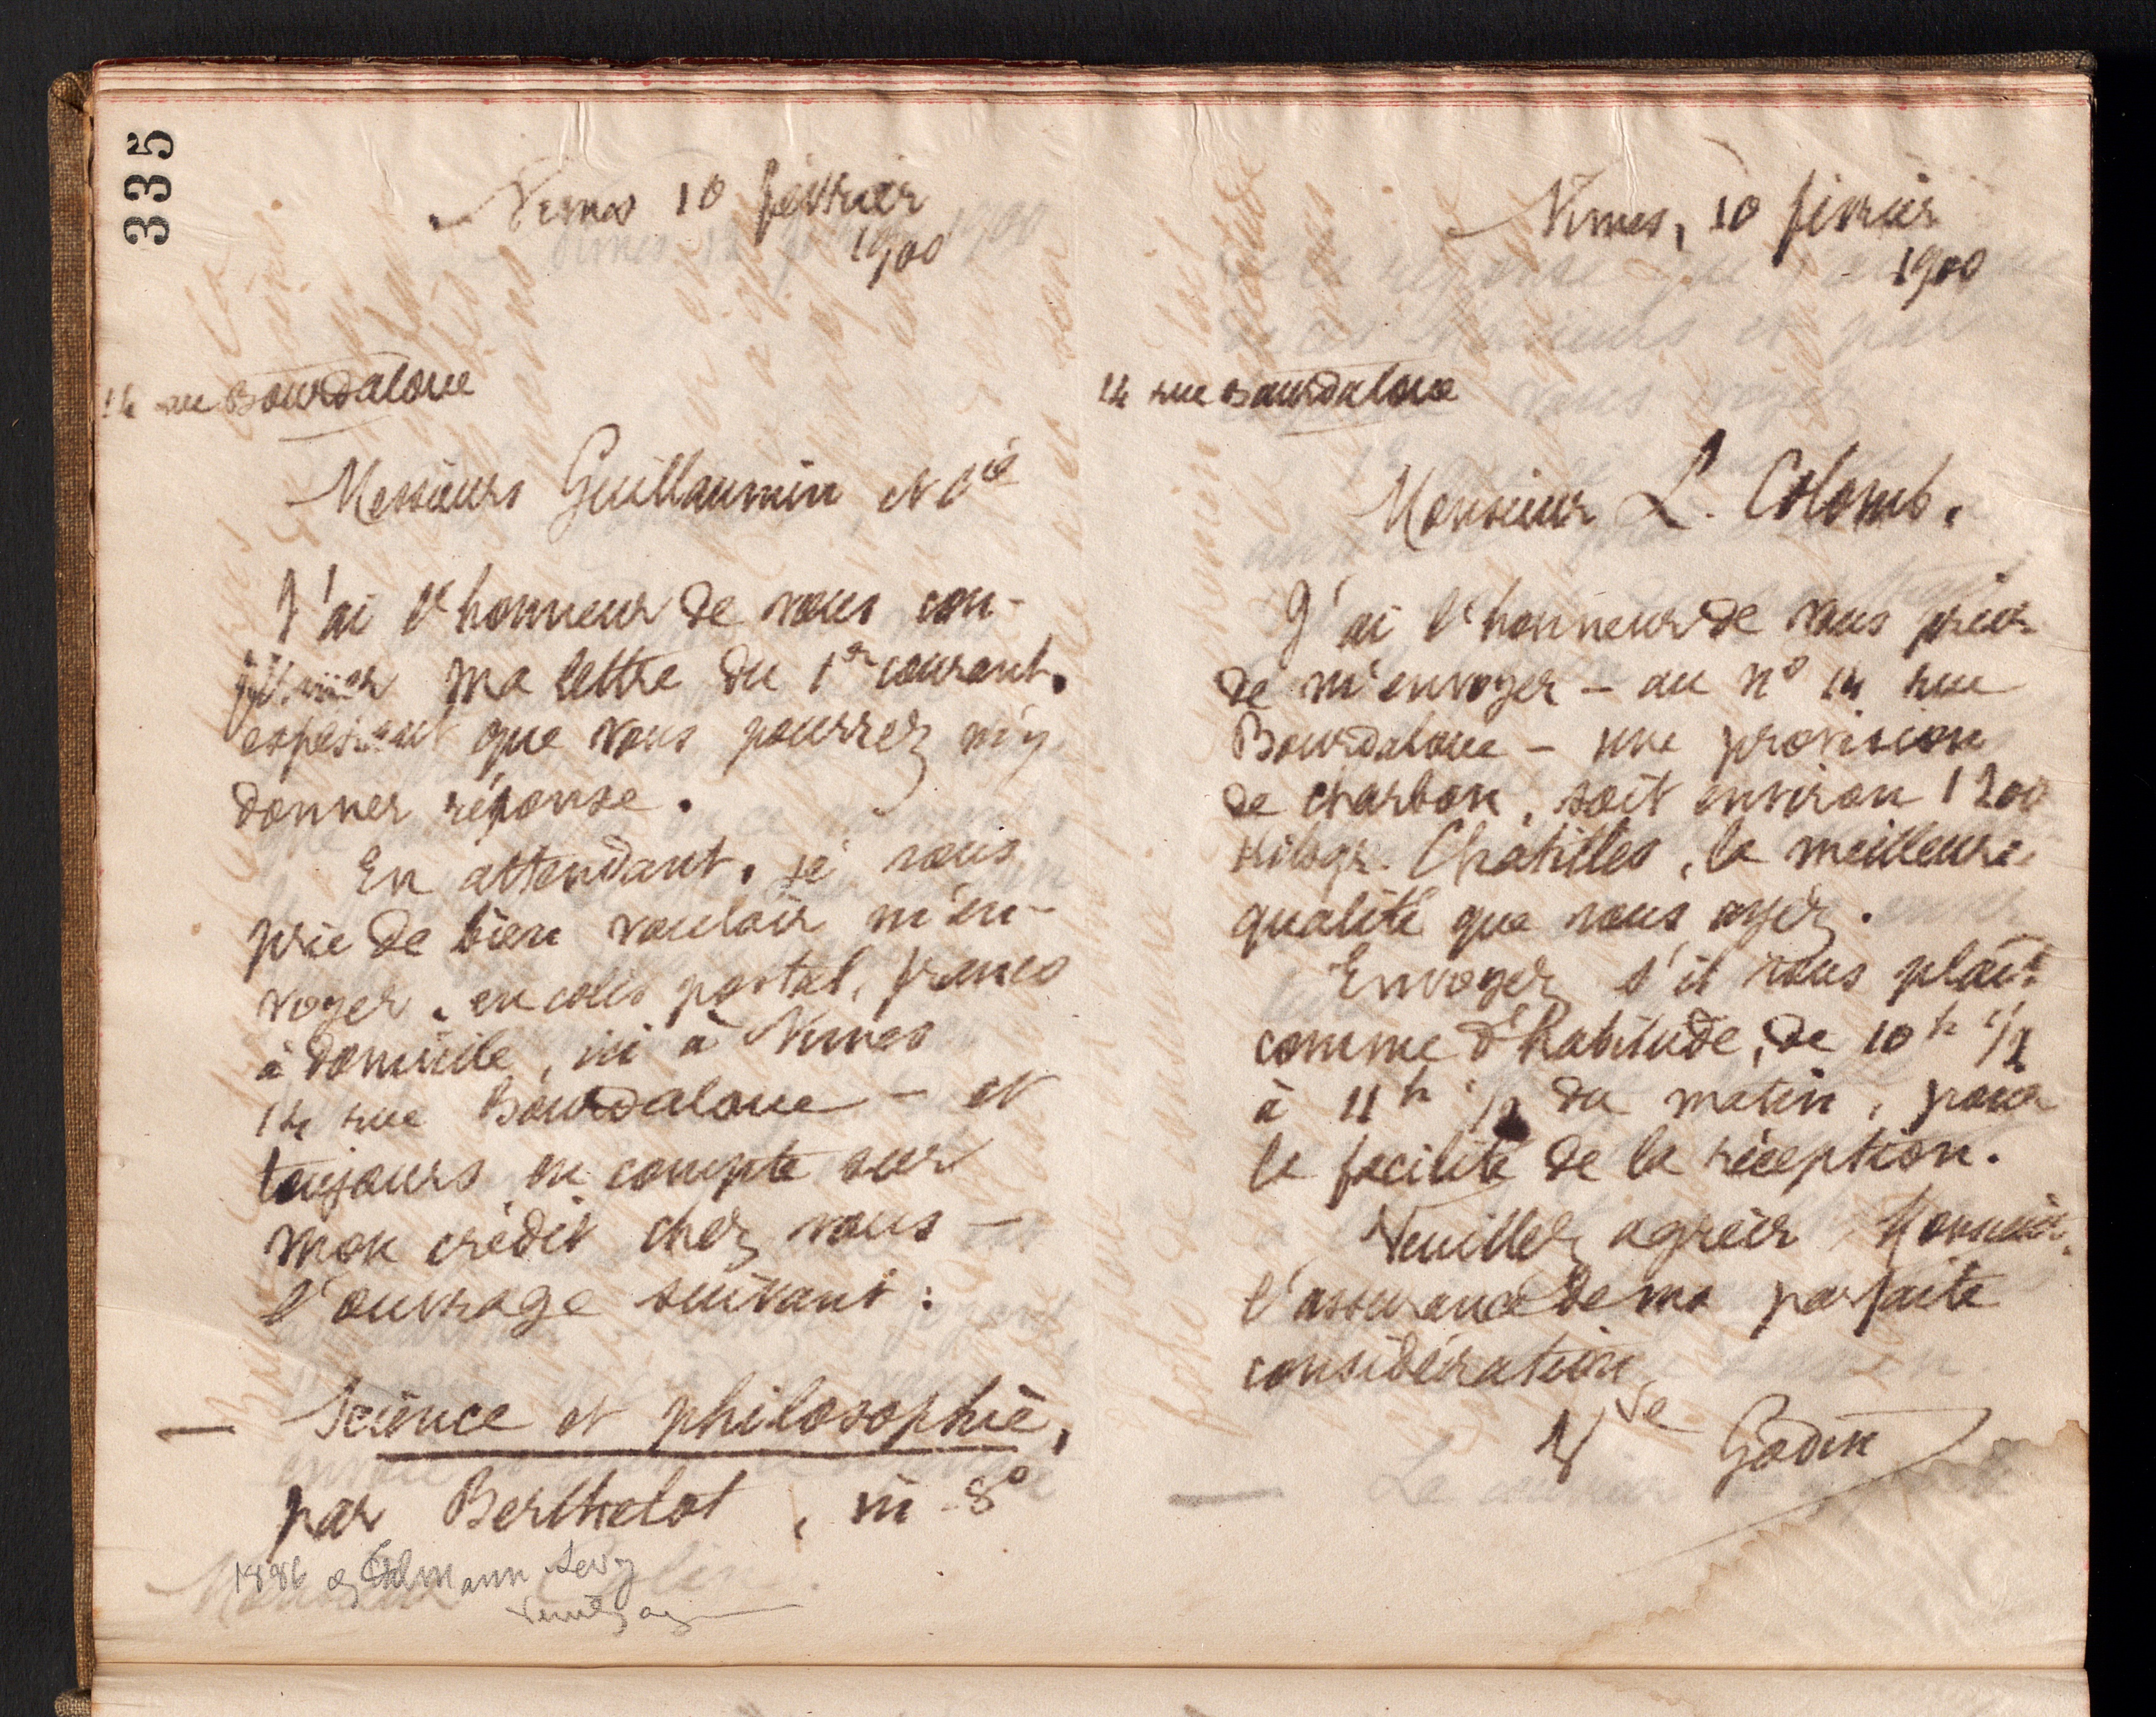 335
Nimes 10 février
1900
14 rue Bourdaloue
Messieurs Guillaumin et Cie
J'ai l'honneur de vous con-
firmer ma lettre du 1er courant,
espérant que vous pourrez m'y
donner réponse.
En attendant, je vous
prie de bien vouloir m'en-
voyer, en colis postal, franco
à domicile, ici à Nimes
14 rue Bourdaloue - et
toujours en compte sur
mon crédit chez vous -
l'ouvrage suivant :
— Science et philosophie,
par Berthelot, in-8°
1886 Calmann Levy
Nimes, 10 février
1900
14 rue Bourdaloue
Monsieur L. Colomb.
J'ai l'honneur de vous prier
de m'envoyer - au n° 14 rue
Bourdaloue - une provision
de charbon, soit environ 1200
kilogr. Chatilles, la meilleure
qualité que vous ayez.
Envoyez s'il vous plait
comme d'habitude, de 10h 1/2
à 11h 1/2 du matin, pour
la facilité de la réception.
Veuillez agréer, Monsieur,
l'assurance de ma parfaite
considération
Vve Godin